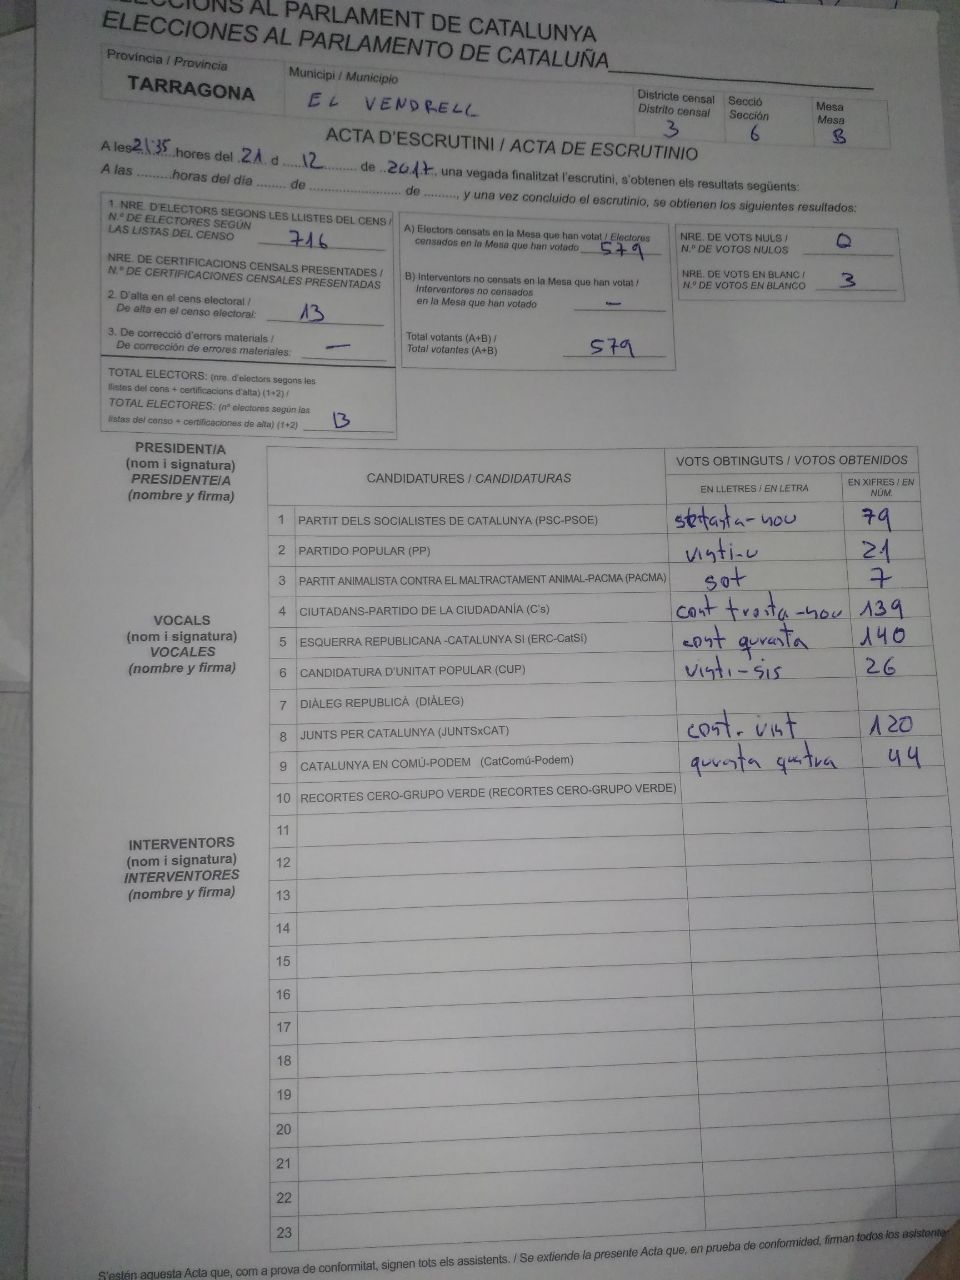 ELECCIONS AL PARLAMENT DE CATALUNYA
ELECCIONES AL PARLAMENTO DE CATALUÑA
Província / Provincia
TARRAGONA
Municipi / Municipio
EL VENDRELL
Districte censal
Distrito censal
3
Secció
Sección
6
Mesa
Mesa
B
ACTA D'ESCRUTINI / ACTA DE ESCRUTINIO
A les 21:35 hores del 21 d 12 de 2017, una vegada finalitzat l'escrutini, s'obtenen els resultats següents:
A las .........horas del día ........ de ........................ de ........, y una vez concluido el escrutinio, se obtienen los siguientes resultados:
1. NRE. D'ELECTORS SEGONS LES LLISTES DEL CENS /
N.º DE ELECTORES SEGÚN
LAS LISTAS DEL CENSO 716
NRE. DE CERTIFICACIONS CENSALS PRESENTADES /
N.º DE CERTIFICACIONES CENSALES PRESENTADAS
2. D'alta en el cens electoral /
De alta en el censo electoral: 13
3. De correcció d'errors materials /
De corrección de errores materiales: —
TOTAL ELECTORS: (nre. d'electors segons les
llistes del cens + certificacions d'alta) (1+2) /
TOTAL ELECTORES: (nº electores según las
listas del censo + certificaciones de alta) (1+2) 13
A) Electors censats en la Mesa que han votat / Electores
censados en la Mesa que han votado 579
B) Interventors no censats en la Mesa que han votat /
Interventores no censados
en la Mesa que han votado —
Total votants (A+B) /
Total votantes (A+B) 579
NRE. DE VOTS NULS /
N.º DE VOTOS NULOS 0
NRE. DE VOTS EN BLANC /
N.º DE VOTOS EN BLANCO 3
PRESIDENT/A
(nom i signatura)
PRESIDENTE/A
(nombre y firma)
VOCALS
(nom i signatura)
VOCALES
(nombre y firma)
INTERVENTORS
(nom i signatura)
INTERVENTORES
(nombre y firma)
CANDIDATURES / CANDIDATURAS
VOTS OBTINGUTS / VOTOS OBTENIDOS
EN LLETRES / EN LETRA
EN XIFRES / EN
NÚM.
1 PARTIT DELS SOCIALISTES DE CATALUNYA (PSC-PSOE) setanta-nou 79
2 PARTIDO POPULAR (PP) vinti-u 21
3 PARTIT ANIMALISTA CONTRA EL MALTRACTAMENT ANIMAL-PACMA (PACMA) set 7
4 CIUTADANS-PARTIDO DE LA CIUDADANÍA (C's) cent trenta-nou 139
5 ESQUERRA REPUBLICANA -CATALUNYA SÍ (ERC-CatSí) cent quranta 140
6 CANDIDATURA D'UNITAT POPULAR (CUP) vinti-sis 26
7 DIÀLEG REPUBLICÀ (DIÀLEG)
8 JUNTS PER CATALUNYA (JUNTSxCAT) cent. vint 120
9 CATALUNYA EN COMÚ-PODEM (CatComú-Podem) quranta quatra 44
10 RECORTES CERO-GRUPO VERDE (RECORTES CERO-GRUPO VERDE)
11
12
13
14
15
16
17
18
19
20
21
22
23
S'estén aquesta Acta que, com a prova de conformitat, signen tots els assistents. / Se extiende la presente Acta que, en prueba de conformidad, firman todos los asistente